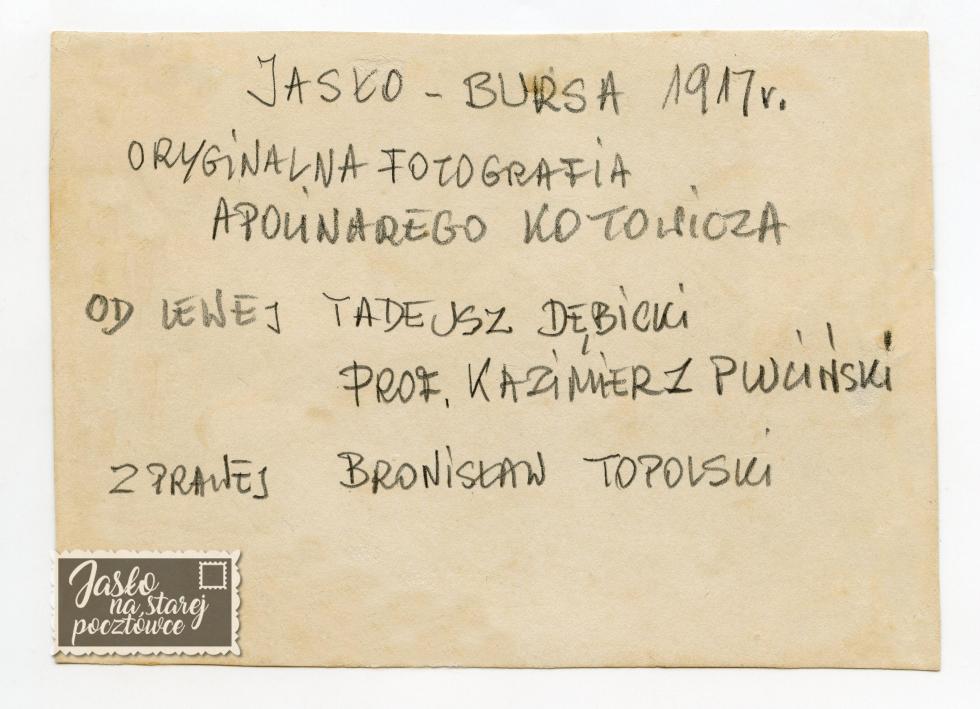 JASŁO - BURSA 1917 r.
ORYGINALNA FOTOGRAFIA
APOLINAREGO KOTOWICZA
OD LEWEJ TADEUSZ DĘBICKI
PROF. KAZIMIERZ PWCIŃSKI
Z PRAWEJ BRONISŁAW TOPOLSKI
Jasło
na starej
pocztówce